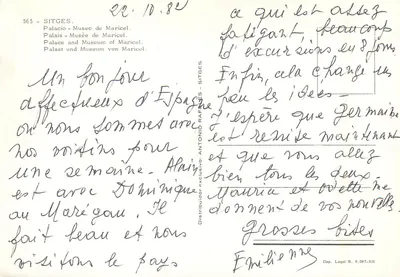 22.10.82
365 - SITGES.
Palacio - Museo de Maricel.
Palais - Musée de Maricel.
Palace and Museum of Maricel.
Palast und Museum von Maricel.
Un bonjour
affectueux d'Espagne
où nous sommes avec
nos voisins pour
une semaine. Alain
est avec Dominique
au Marégau. Il
fait beau et nous
visitons le pays
Distribuidor exclusivo: ANTONIO - SITGES
ce qui est assez
fatigant, beaucoup
d'excursions en 8 jours
Enfin, ça change un
peu les idées -
J'espère que Germaine
est remise maintenant
et que vous allez
bien tous les deux.
Maurice et Odette me
donnent de vos nouvelles.
Grosses bises
Emilienne
Dep. Legal B.